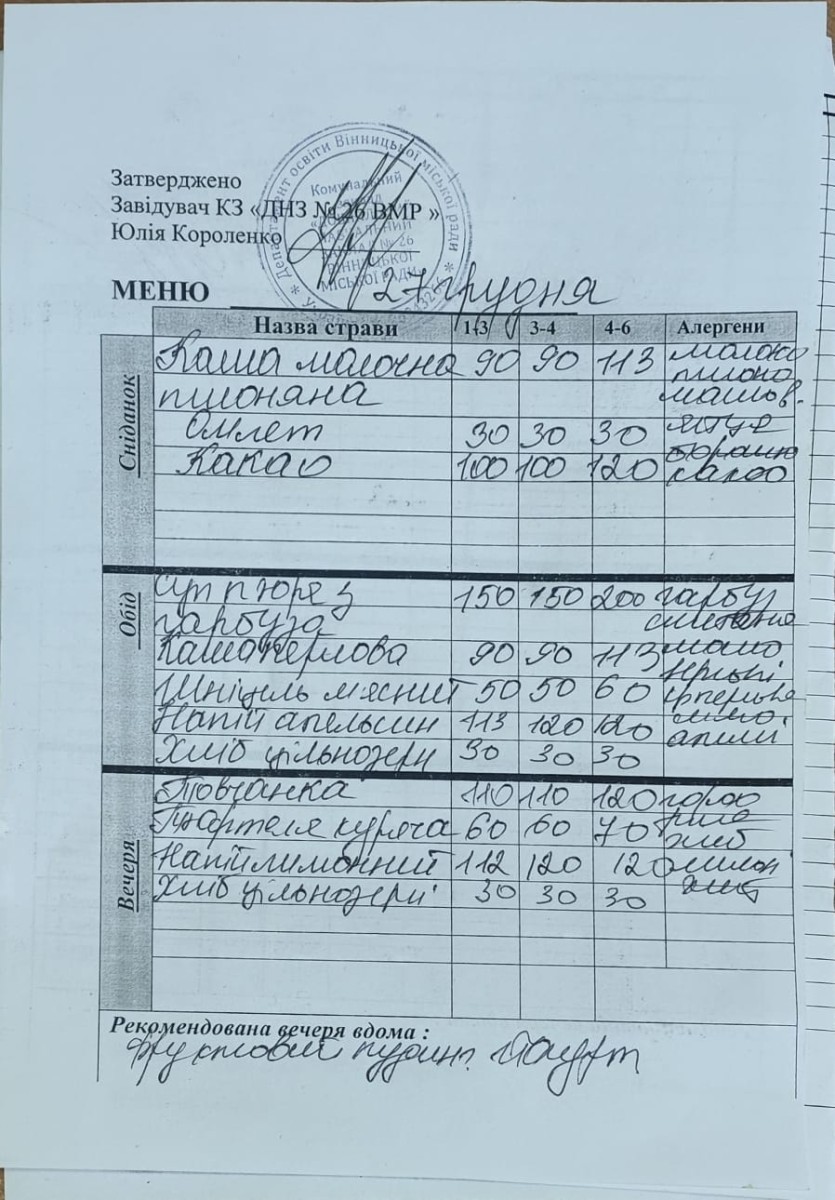 Департамент освіти Вінницької міської ради
Комунальний
Затверджено
Завідувач КЗ «ДНЗ № 26 ВМР »
Юлія Короленко
НАВЧАЛЬНИЙ
№ 26
ВІННИЦЬКОЇ
МІСЬКОЇ РАДИ
МЕНЮ 27 грудня
Назва страви 1-3 3-4 4-6 Алергени
Сніданок
Каша молочна 90 90 113 молоко
пшоняна пшоно
Омлет 30 30 30 яйця
борошно
Какао 100 100 120 какао
Обід
Суп пюре з 150 150 200 гарбуз
гарбуза сметана
Каша перлова 90 90 113
Шніцель мясний 50 50 60
Напій апельсин 113 120 120
Хліб цільнозерн 30 30 30
Вечеря
Товчанка 110 110 120 горох
куряча 60 60 70 хліб
Напій лимонний 112 120 120
Хліб цільнозерн 30 30 30
Рекомендована вечеря вдома :
Фруктовий пудинг. Йогурт